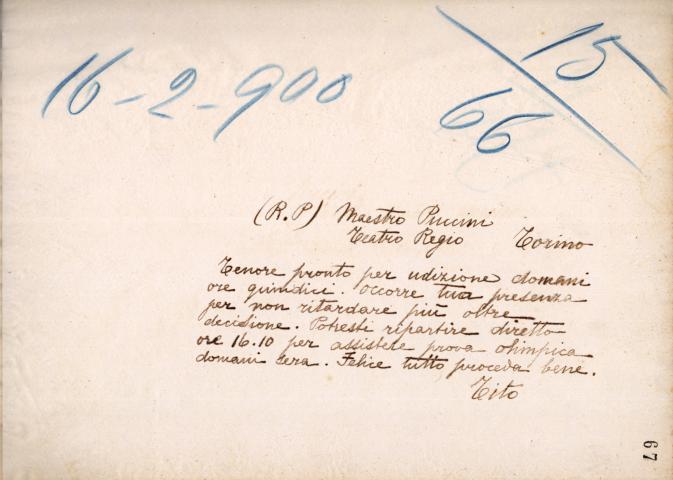 16-2-900
15
66
(R.P) Maestro Puccini
Teatro Regio Torino
Tenore pronto per udizione domani
ore quindici. occorre tua presenza
per non ritardare più oltre
decisione. Potresti ripartire diretto
ore 16.10 per assistete prova olimpica
domani sera. Felice tutto proceda bene.
Tito
67